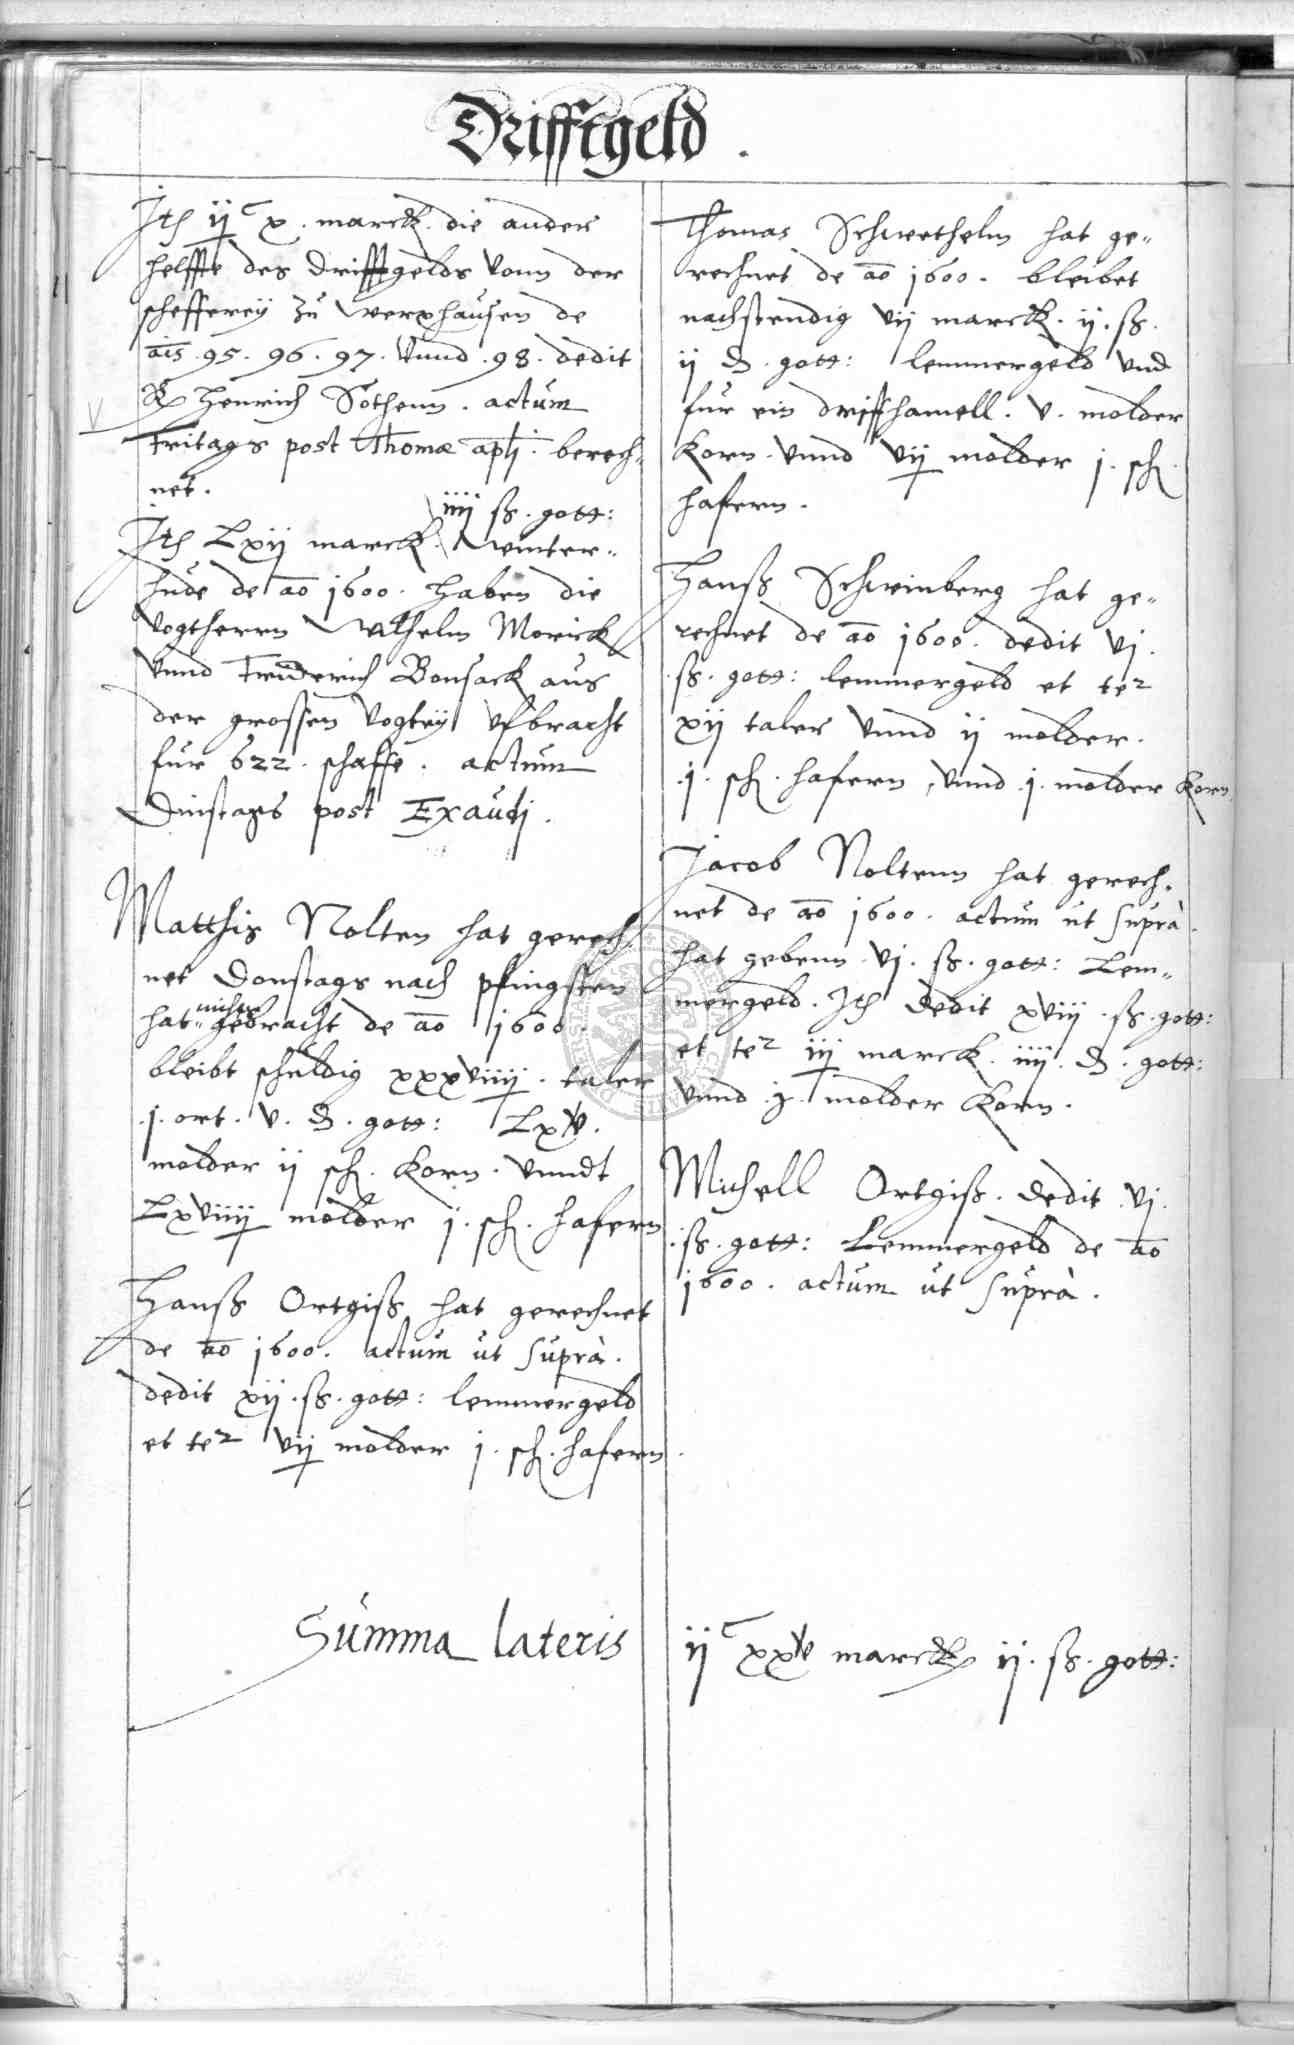 Drifftgeld.
Ith ij c x. marck. die ander
helffte des drifftgelds vonn der
schefferey zů Werxhaůsen de
ais. 95. 96. 97. vnnd. 98. dedit
Henrich Sothenn. actům
Fritags post Thomæ aplj. berech„
net.
iiij ß. gott:
Ith Lxij marck. Winter„
hůde de ao 1600. haben die
Vogtherrn Wilhelm Morick
vnnd Friderich Bonsack aus
der grossen Vogtey vfbracht
fůr 622. schaffe. actům
Dinstags post Exaůdj.
Matthis Nolten hat gerech„
net Donstags nach pfingsten
nichts
hat„ gebracht de ao 1600.
bleibt schůldig xxxviiij. taler
.j. ort. v. d. gott: Lxv.
molder ij sch. Korn. vnndt
Lxviiij molder j. sch. hafern
Hanß Ortgiß hat gerechnet
de ao 1600. actům ůt sůprà.
dedit xij. ß. gott: lemmergeld
et te² vij molder j. sch. hafern.
Thomas Schwethelm hat ge„
rechnet de ao 1600. bleibet
nachstendig vij marck. ij. ß.
ij d. gott: lemmergeld vnd
fůr ein driffhamell. v. molder
Korn. vnnd vij molder j. sch.
hafern.
Hanß Schweinberg hat ge„
rechnet de ao 1600. dedit vj.
ß. gott: lemmergeld et te²
xij taler vnnd ij molder.
.j. sch. hafern, vnnd .j. molder Korn.
Jacob Noltenn hat gerech„
net de ao 1600. actům ůt sůprà.
hat gebenn vj. ß. gott: Lem„
mergeld. Ith dedit xviij. ß. gott:
et te² iij marck. iiij. d. gott:
vnnd .j. molder Korn.
Michell Ortgiß. dedit vj.
.ß. gott: Lemmergeld de ao
1600. actům ůt sůprà.
Sůmma lateris
ij c xxv marck ij. ß. gott: